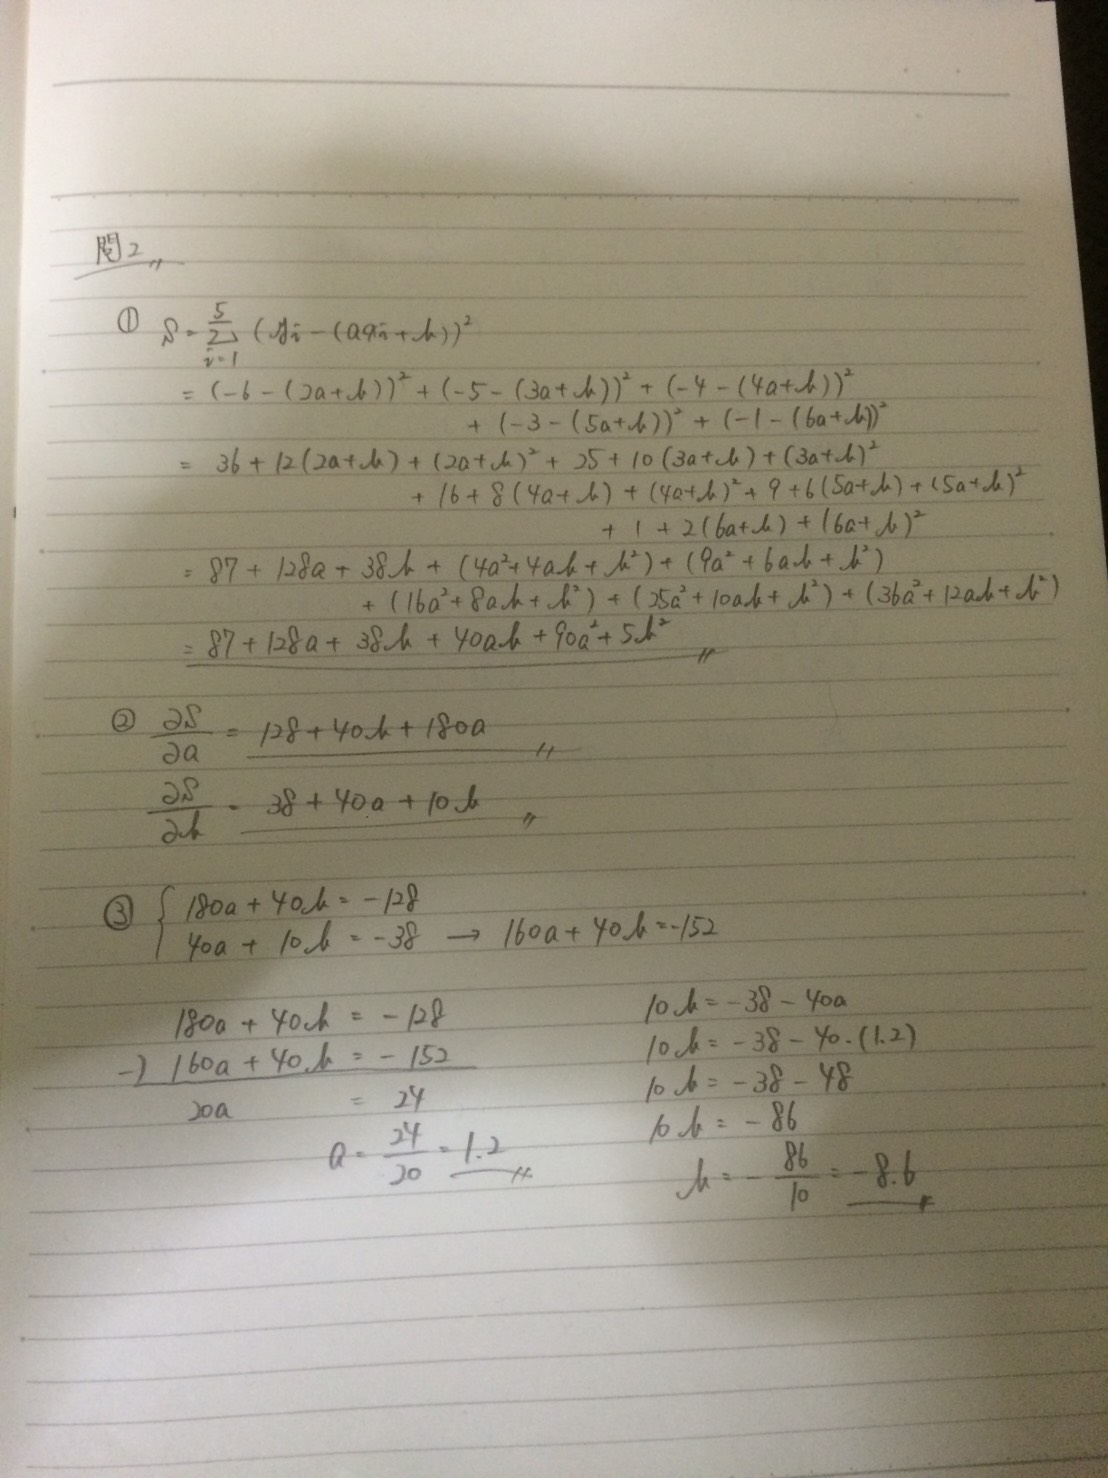 問2
① S = \sum_{i=1}^{5} (yi - (axi + b))²
= (-6 - (2a+b))² + (-5 - (3a+b))² + (-4 - (4a+b))²
+ (-3 - (5a+b))² + (-1 - (6a+b))²
= 36 + 12(2a+b) + (2a+b)² + 25 + 10(3a+b) + (3a+b)²
+ 16 + 8(4a+b) + (4a+b)² + 9 + 6(5a+b) + (5a+b)²
+ 1 + 2(6a+b) + (6a+b)²
= 87 + 128a + 38b + (4a²+4ab+b²) + (9a²+6ab+b²)
+ (16a²+8ab+b²) + (25a²+10ab+b²) + (36a²+12ab+b²)
= 87 + 128a + 38b + 40ab + 90a² + 5b²
② ∂S/∂a = 128 + 40b + 180a
∂S/∂b = 38 + 40a + 10b
③ { 180a + 40b = -128
40a + 10b = -38 → 160a + 40b = -152
180a + 40b = -128
-) 160a + 40b = -152
20a = 24
a = 24/20 = 1.2
10b = -38 - 40a
10b = -38 - 40·(1.2)
10b = -38 - 48
10b = -86
b = - 86/10 = -8.6